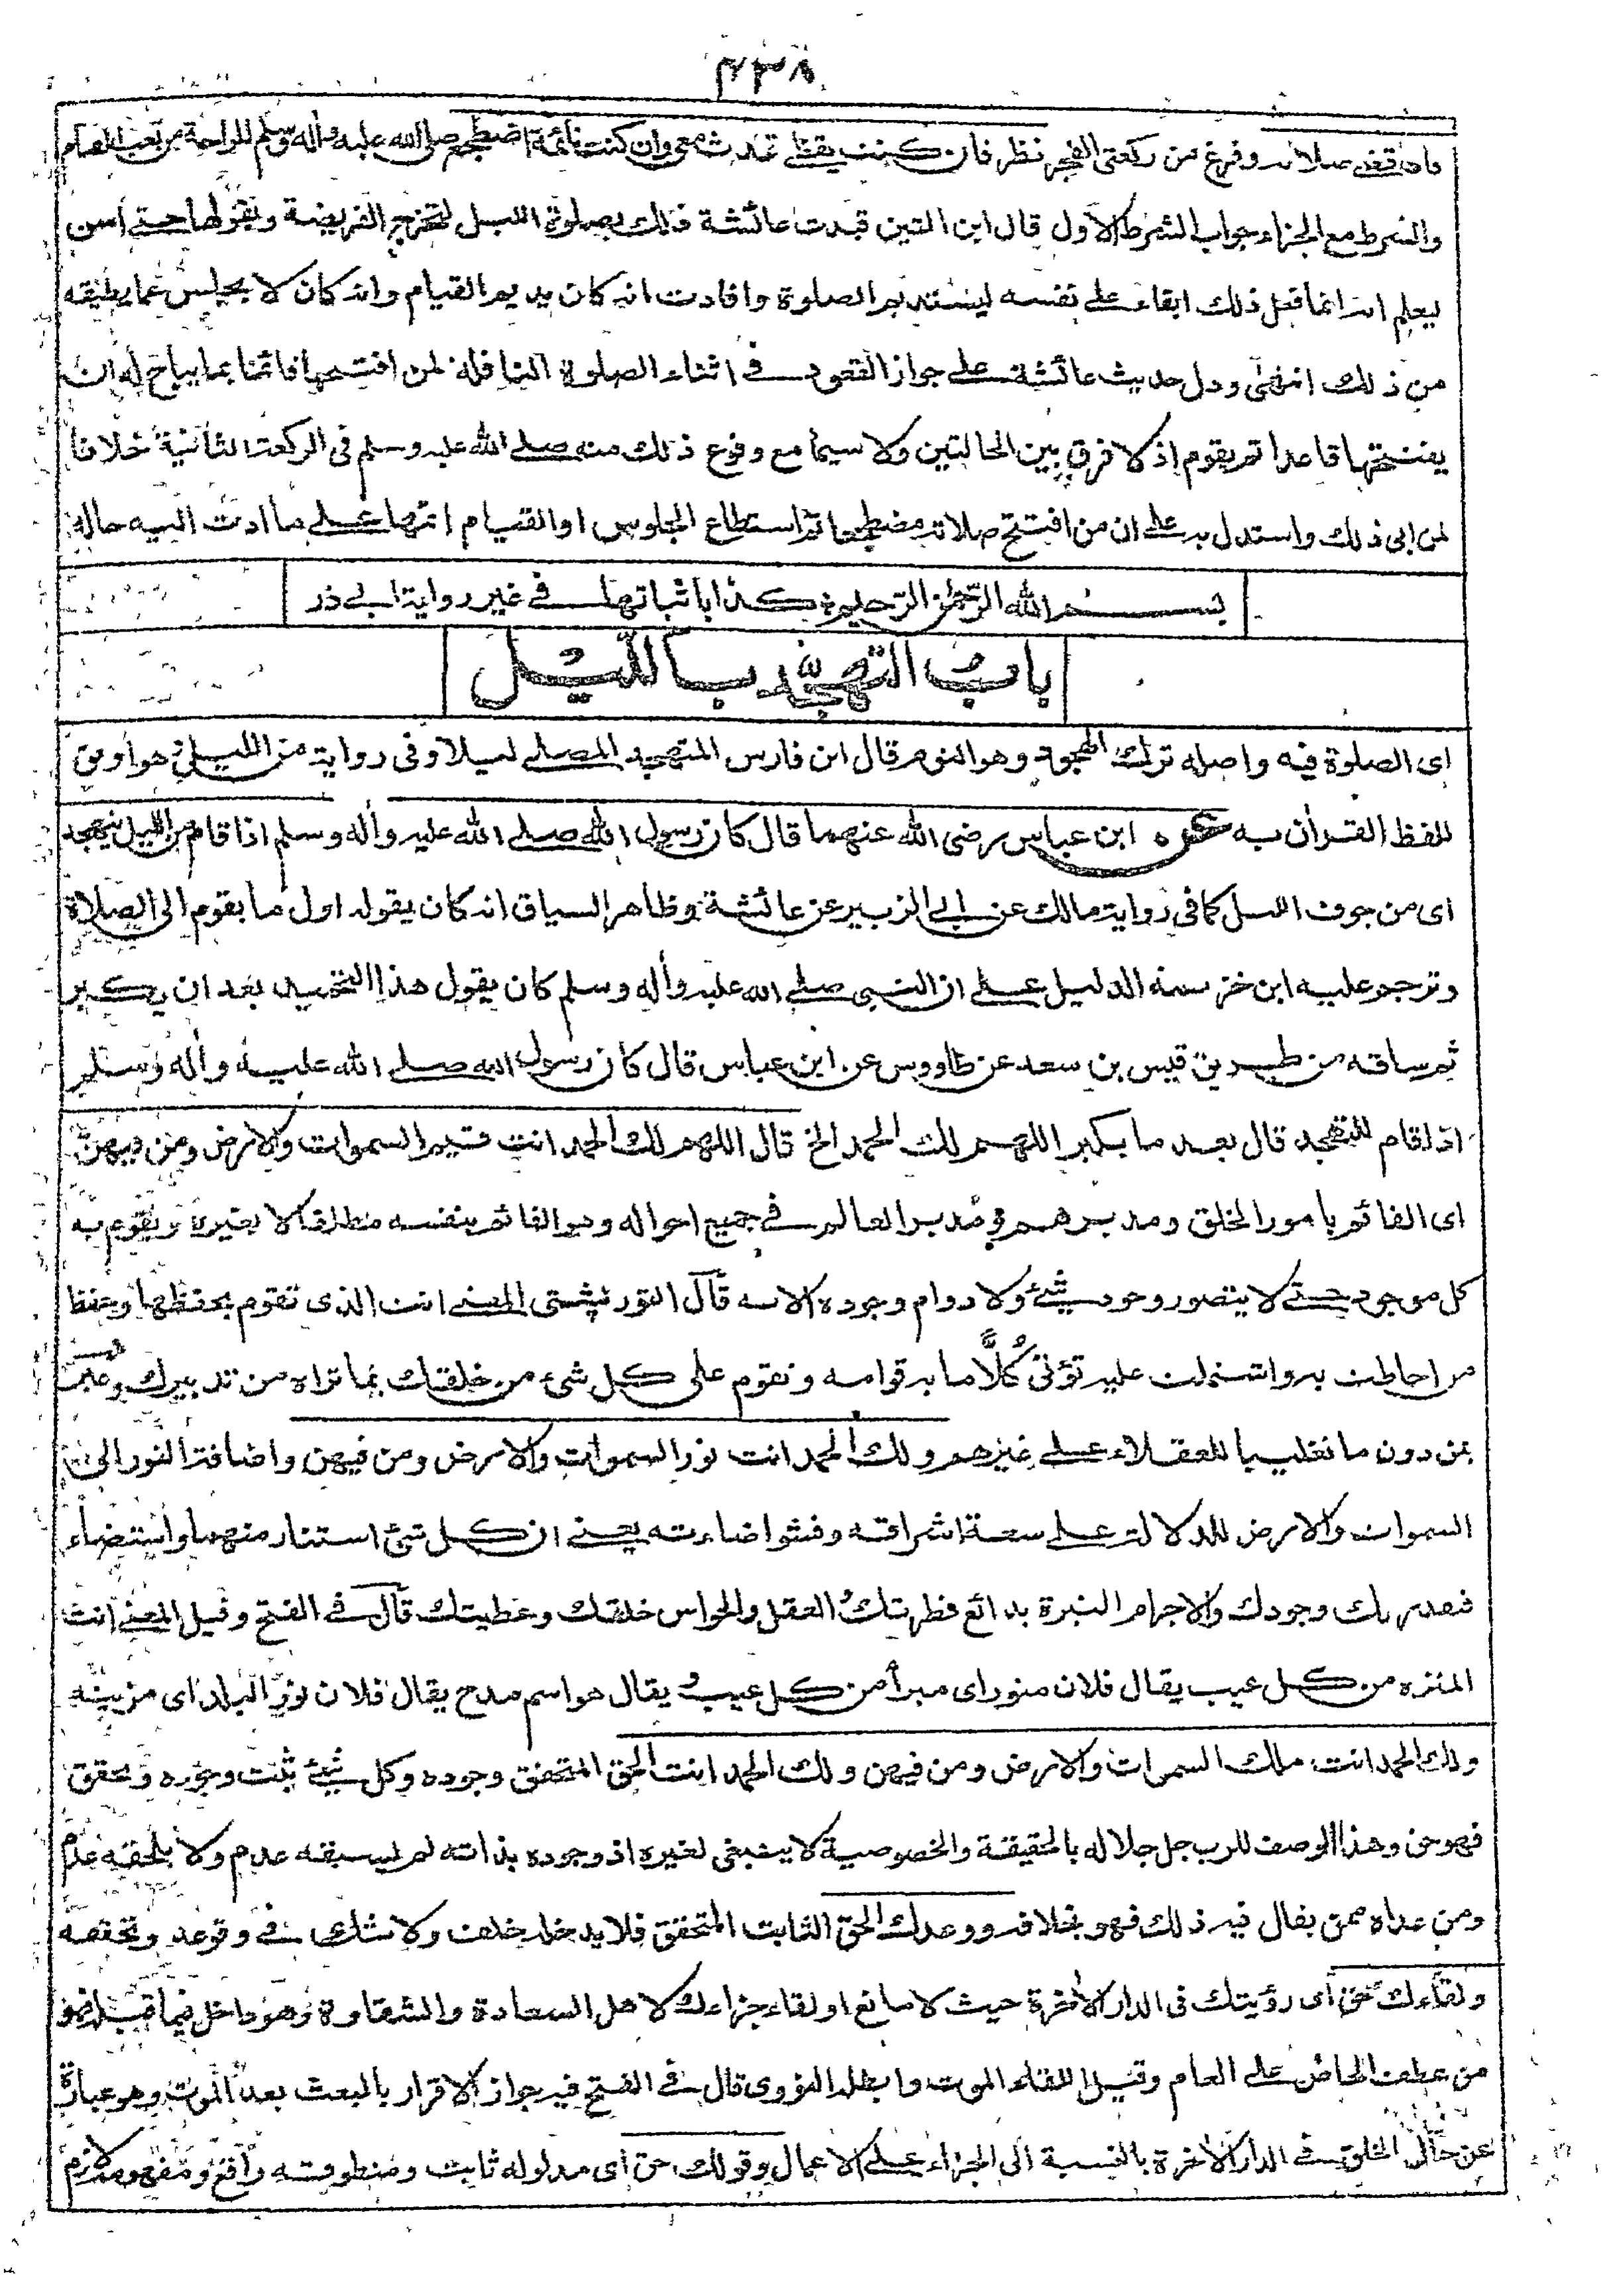 ٤٣٨
فاذا قضى صلاته وفرغ من ركعتى الفجر نظر فان كنت يقظى تحدث معى وان كنت نائمة اضطجع صلى الله عليه وأله وسلم للراحة من تعب القيام
والشرط مع الجزاء جواب الشرط الاول قال ابن التين قيدت عائشة ذلك بصلوة الليل لتخرج الفريضة وبقولها حتى أسن
ليعلم انه انما فعل ذلك ابقاء على نفسه ليستديم الصلوة وافادت انه كان يديم القيام وانه كان لا يجلس عما يطيقه
من ذلك انتهى ودل حديث عائشة على جواز القعود فى اثناء الصلوة النافلة لمن افتتحها قائما كما يباح له ان
يفتتحها قاعدا ثم يقوم اذ لا فرق بين الحالتين ولا سيما مع وقوع ذلك منه صلى الله عليه وسلم فى الركعة الثانية خلافا
لمن ابى ذلك واستدل به على ان من افتتح صلاته مضطجعا ثم استطاع الجلوس او القيام اتمها على ما ادت اليه حاله
بسم الله الرحمن الرحيم كذا باثباتها فى غير رواية ابى ذر
باب التهجد بالليل
اى الصلوة فيه واصله ترك الهجود وهو النوم قال ابن فارس المتهجد المصلى ليلا وفى رواية من الليل هو اوفق
للفظ القرأن به عن ابن عباس رضى الله عنهما قال كان رسول الله صلى الله عليه وأله وسلم اذا قام من الليل يتهجد
اى من جوف الليل كما فى رواية مالك عن ابى الزبير عن عائشة وظاهر السياق انه كان يقوله اول ما يقوم الى الصلاة
وترجم عليه ابن خزيمة الدليل على ان النبى صلى الله عليه وأله وسلم كان يقول هذا التحميد بعد ان يكبر
ثم ساقه من طريق قيس بن سعد عن طاووس عن ابن عباس قال كان رسول الله صلى الله عليه وأله وسلم
اذا قام للتهجد قال بعد ما يكبر اللهم لك الحمد الخ قال اللهم لك الحمد انت قيم السموات والارض ومن فيهن
اى القائم بامور الخلق ومدبرهم ومدبر العالم فى جميع احواله وهو القائم بنفسه مطلقا لا بغيره ويقوم به
كل موجود حتى لا يتصور وجود شئ ولا دوام وجوده الا به قال التوربشتى المعنى انت الذى تقوم بحفظها وحفظ
من احاطت به واشتملت عليه تؤتى كلا ما به قوامه وتقوم على كل شئ من خلقك بما تراه من تدبيرك وعبر
بمن دون ما تغليبا للعقلاء على غيرهم ولك الحمد انت نور السموات والارض ومن فيهن واضافة النور الى
السموات والارض للدلالة على سعة اشراقه وفشو اضاءته يعنى ان كل شئ استنار منهما واستضاء
فبقدرتك وجودك والاجرام النيرة بدائع فطرتك العقل والحواس خلقك وعطيتك قال فى الفتح وقيل المعنى انت
المنزه من كل عيب يقال فلان منور اى مبرأ من كل عيب ويقال هو اسم مدح يقال فلان نور البلد اى مزينه
ولك الحمد انت ملك السموات والارض ومن فيهن ولك الحمد انت الحق المتحقق وجوده وكل شئ ثبت وجوده وتحقق
فهو حق وهذا الوصف للرب جل جلاله بالحقيقة والخصوصية لا ينبغى لغيره اذ وجوده بذاته لم يسبقه عدم ولا يلحقه عدم
ومن عداه ممن يقال فيه ذلك فهو بخلافه ووعدك الحق الثابت المتحقق فلا يدخله خلف ولا شك فى وقوعه وتحققه
ولقاءك حق اى رؤيتك فى الدار الأخرة حيث لا مانع او لقاء جزاءك لاهل السعادة والشقاوة وهو داخل فيما قبله فهو
من عطف الخاص على العام وقيل اللقاء الموت وابطله النووى قال فى الفتح فيه جواز الاقرار بالبعث بعد الموت وهو عبارة
عن حال الخلق فى الدار الأخرة بالنسبة الى الجزاء على الاعمال وقولك حق اى مدلوله ثابت ومنطوقه واقع ومفهومه لازم